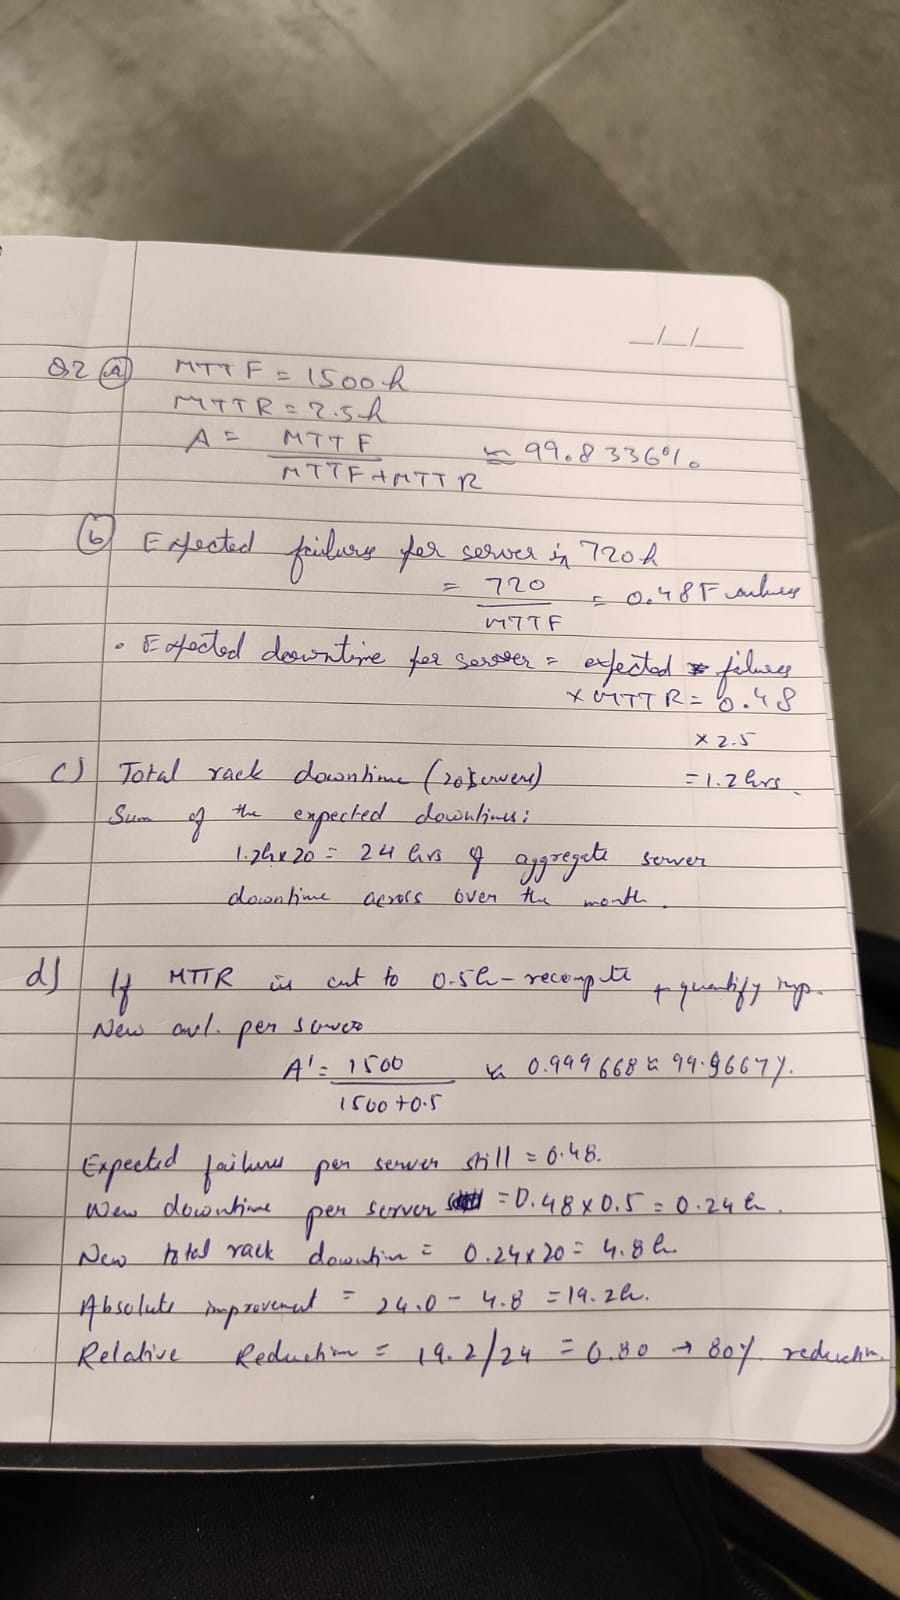 _/_/_
Q2 (a) MTTF = 1500h
MTTR = 2.5h
A = MTTF / MTTF + MTTR ≈ 99.8336%
(b) Expected failures per server in 720h
= 720 / MTTF = 0.48 Failures
• Expected downtime per server = expected failures
× MTTR = 0.48
× 2.5
= 1.2 hrs.
c) Total rack downtime (20 servers)
Sum of the expected downtimes:
1.2h x 20 = 24 hrs of aggregate server
downtime across over the month.
d) If MTTR is cut to 0.5h - recompute + quantify imp.
New avl. per server
A' = 1500 / 1500 + 0.5 ≈ 0.999668 ≈ 99.9667%.
Expected failures per server still = 0.48.
New downtime per server = 0.48 x 0.5 = 0.24 h.
New total rack downtim = 0.24 x 20 = 4.8 h.
Absolute improvement = 24.0 - 4.8 = 19.2h.
Relative Reduction = 19.2/24 = 0.80 → 80% reduction.